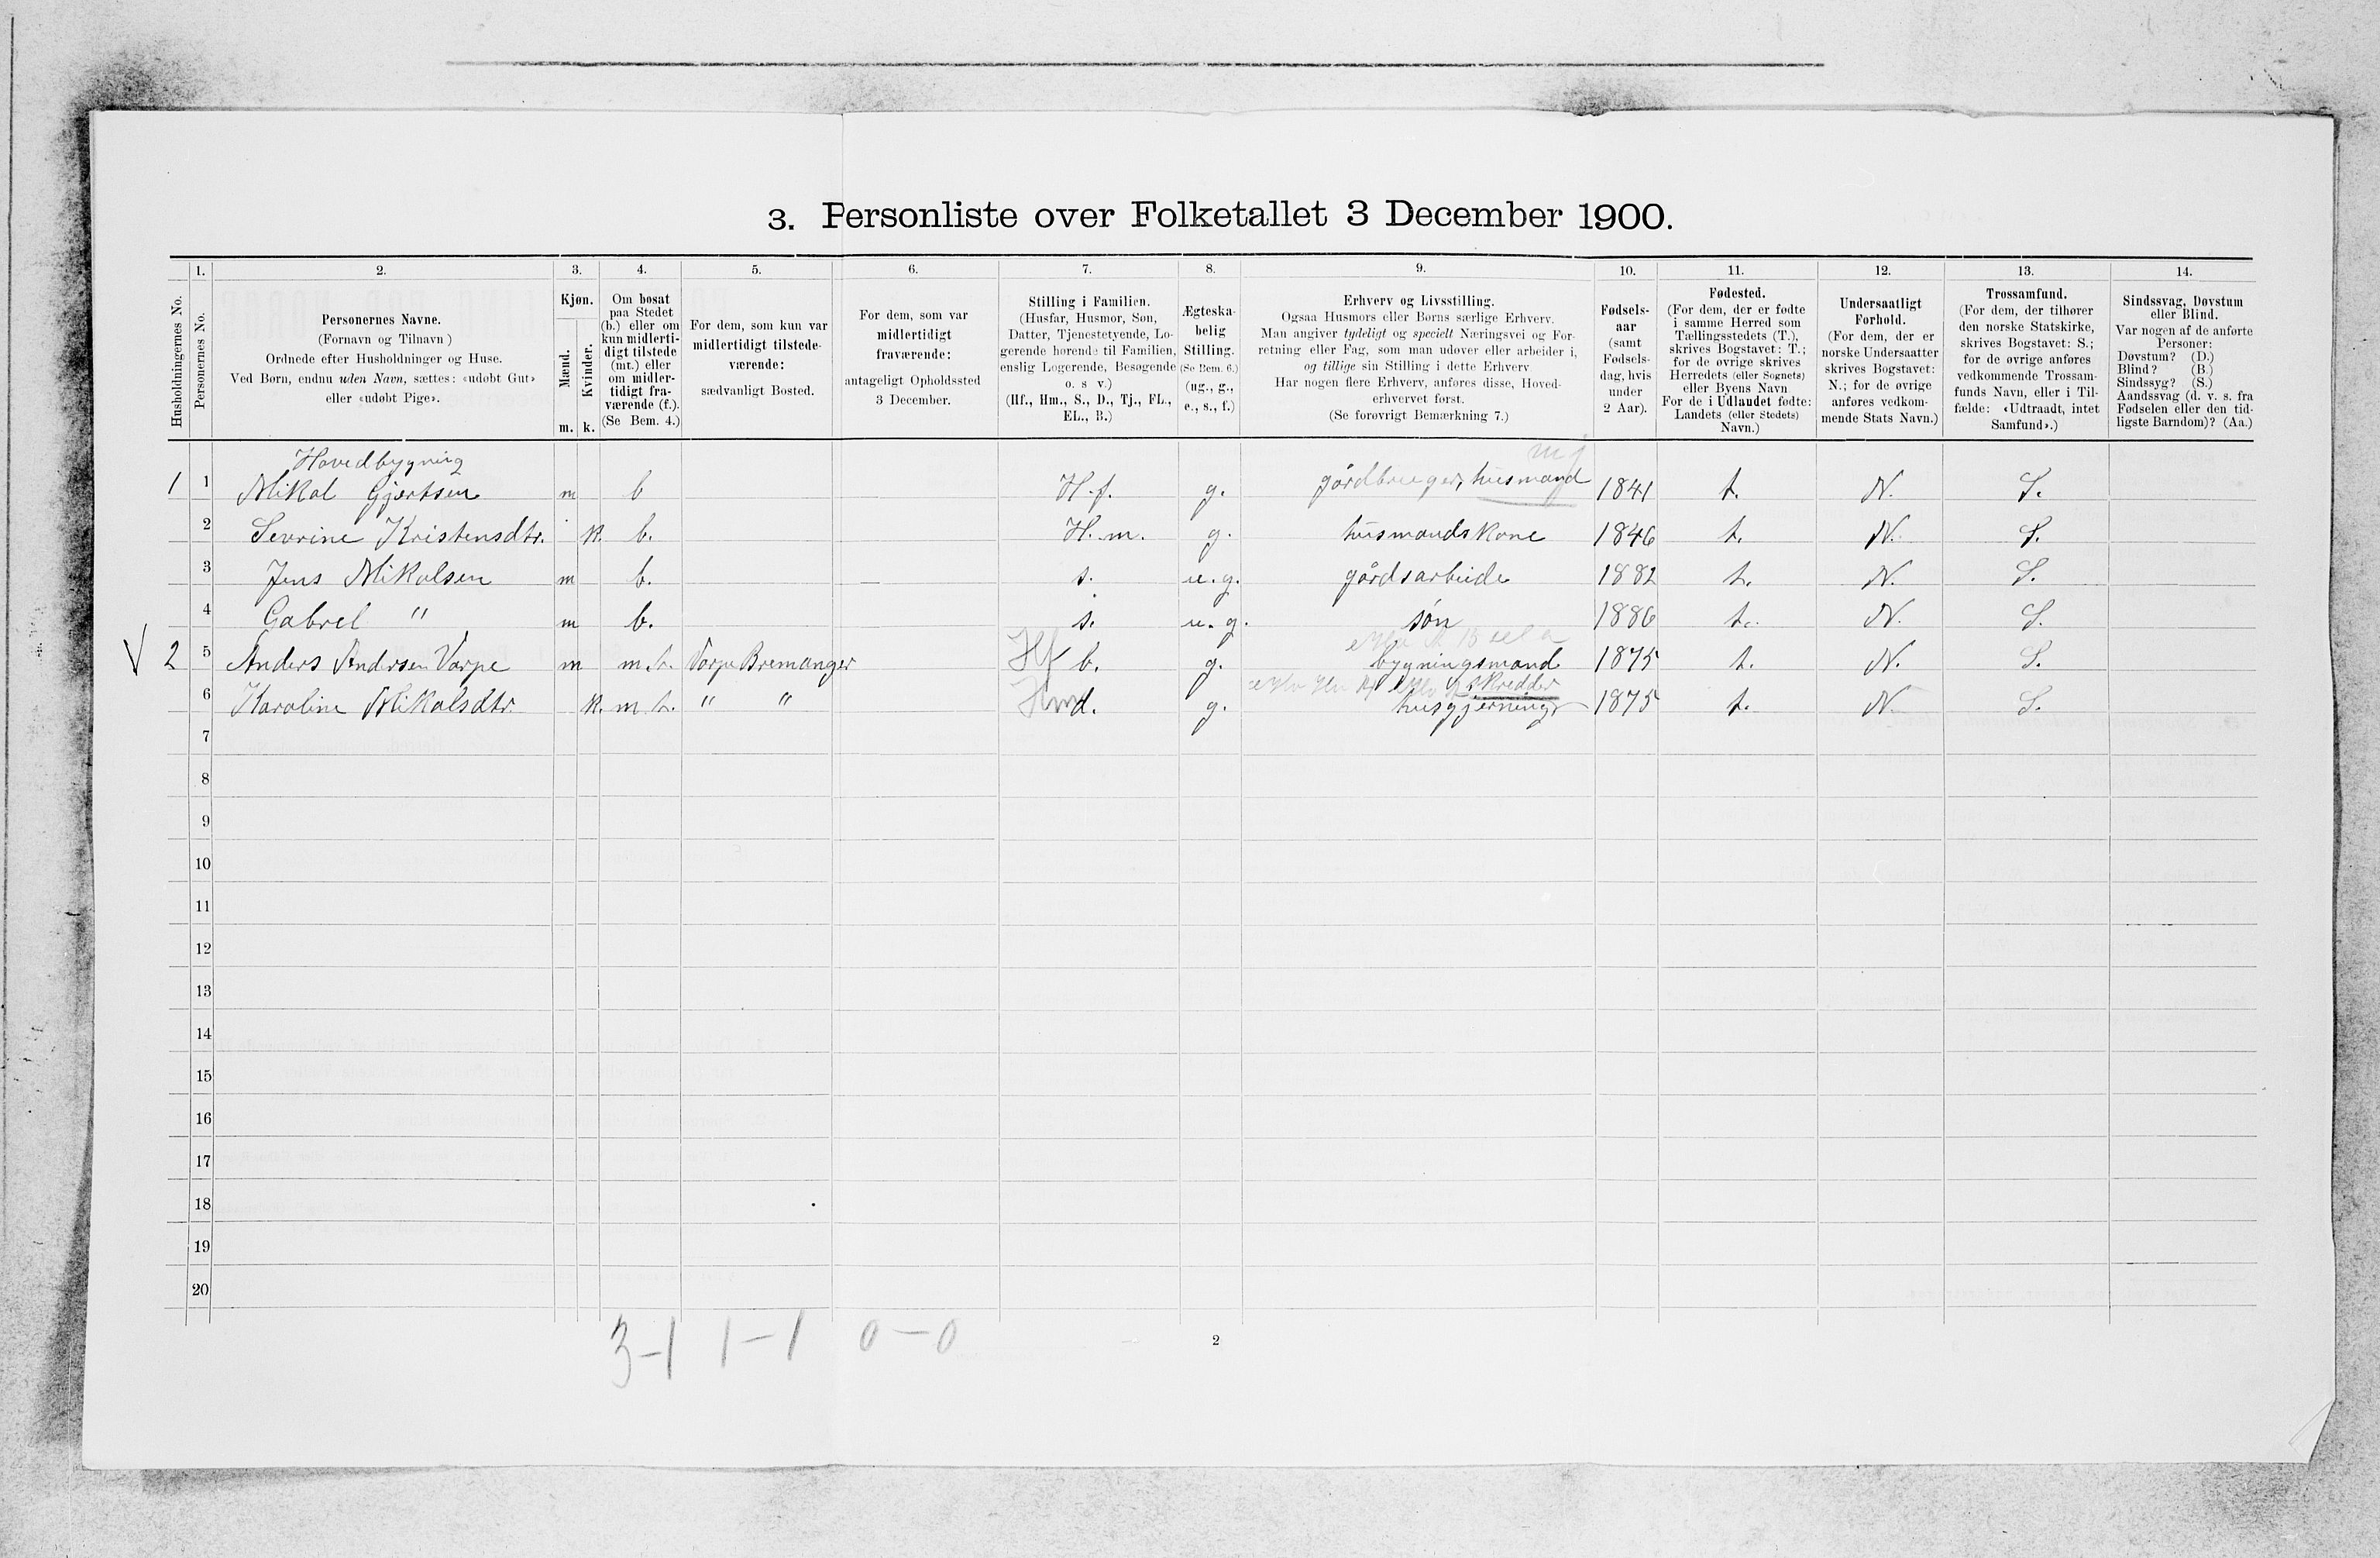 3. Personliste over Folketallet 3 December 1900.
1. 2. 3. 4. 5. 6. 7. 8. 9. 10. 11. 12. 13. 14.
Husholdningernes No.
Personernes No.
Personernes Navne.
(Fornavn og Tilnavn)
Ordnede efter Husholdninger og Huse.
Ved Børn, endnu uden Navn, sættes: «udøbt Gut»
eller «udøbt Pige».
Kjøn.
Mænd.
Kvinder.
m. k.
Om bosat
paa Stedet
(b.) eller om
kun midlerti-
digt tilstede
(mt.) eller
om midler-
tidigt fra-
værende (f.).
(Se Bem. 4.)
For dem, som kun var
midlertidigt tilstede-
værende:
sædvanligt Bosted.
For dem, som var
midlertidigt
fraværende:
antageligt Opholdssted
3 December.
Stilling i Familien.
(Husfar, Husmor, Søn,
Datter, Tjenestetyende, Lo-
gerende hørende til Familien,
enslig Logerende, Besøgende
o. s v.)
(Hf., Hm., S., D., Tj., FL.,
EL., B.)
Ægteska-
belig
Stilling.
(Se Bem. 6.)
(ug., g.,
e., s., f.)
Erhverv og Livsstilling.
Ogsaa Husmors eller Børns særlige Erhverv.
Man angiver tydeligt og specielt Næringsvei og For-
retning eller Fag, som man udøver eller arbeider i,
og tillige sin Stilling i dette Erhverv
Har nogen flere Erhverv, anføres disse, Hoved-
erhvervet først.
(Se forøvrigt Bemærkning 7.)
Fødsels-
aar
(samt
Fødsels-
dag, hvis
under
2 Aar).
Fødested.
(For dem, der er fødte
i samme Herred som
Tællingsstedets (T.),
skrives Bogstavet: T.;
for de øvrige skrives
Herredets (eller Sognets)
eller Byens Navn
For de i Udlandet fødte:
Landets (eller Stedets)
Navn.)
Undersaatligt
Forhold.
(For dem, der er
norske Undersaatter
skrives Bogstavet:
N.; for de øvrige
anføres vedkom-
mende Stats Navn.)
Trossamfund.
(For dem, der tilhører
den norske Statskirke,
skrives Bogstavet: S.;
for de øvrige anføres
vedkommende Trossam-
funds Navn, eller i Til-
fælde: «Udtraadt, intet
Samfund».)
Sindssvag, Døvstum
eller Blind.
Var nogen af de anførte
Personer:
Døvstum? (D.)
Blind? (B.)
Sindssyg? (S.)
Aandssvag (d. v. s. fra
Fødselen eller den tid-
ligste Barndom)? (Aa.)
Hovedbygning
1 1 Mikal Gjertsen m b H.f. g. gårdbruger, husmand 1841 t. N. S.
2 Sevrine Kristensdtr. k. b. H.m. g. husmandskone 1846 t. N. S.
3 Jens Mikalsen m b. s. u.g. gårdsarbeide 1882 t. N. S.
4 Gabrel " m b. s. u.g. søn 1886 t. N. S.
V 2 5 Anders Andersen Varpe m m.t. Varpe Bremanger Hf b. g. bygningsmand 1875 t. N. S.
skredder
6 Karoline Mikalsdtr. k. m.t. " " Hm d. g. husgjerning 1875 t. N. S.
7
8
9
10
11
12
13
14
15
16
17
18
19
20
3-1 1-1 0-0
2